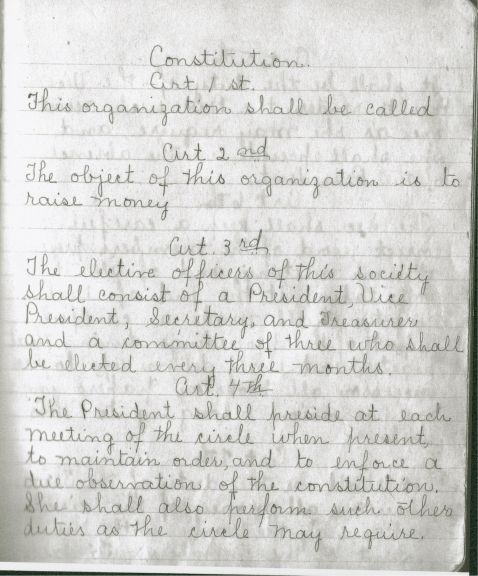 Constitution.
Art. 1 st.
This organization shall be called
Art. 2 nd
The object of this organization is to
raise money
Art. 3 rd.
The elective officers of this society
shall consist of a President, Vice
President, Secretary, and Treasurer
and a committee of three who shall
be elected every three months.
Art. 4 th
The President shall preside at each
meeting of the circle when present,
to maintain order, and to enforce a
due observation of the constitution.
She shall also perform such other
duties as the circle may require.